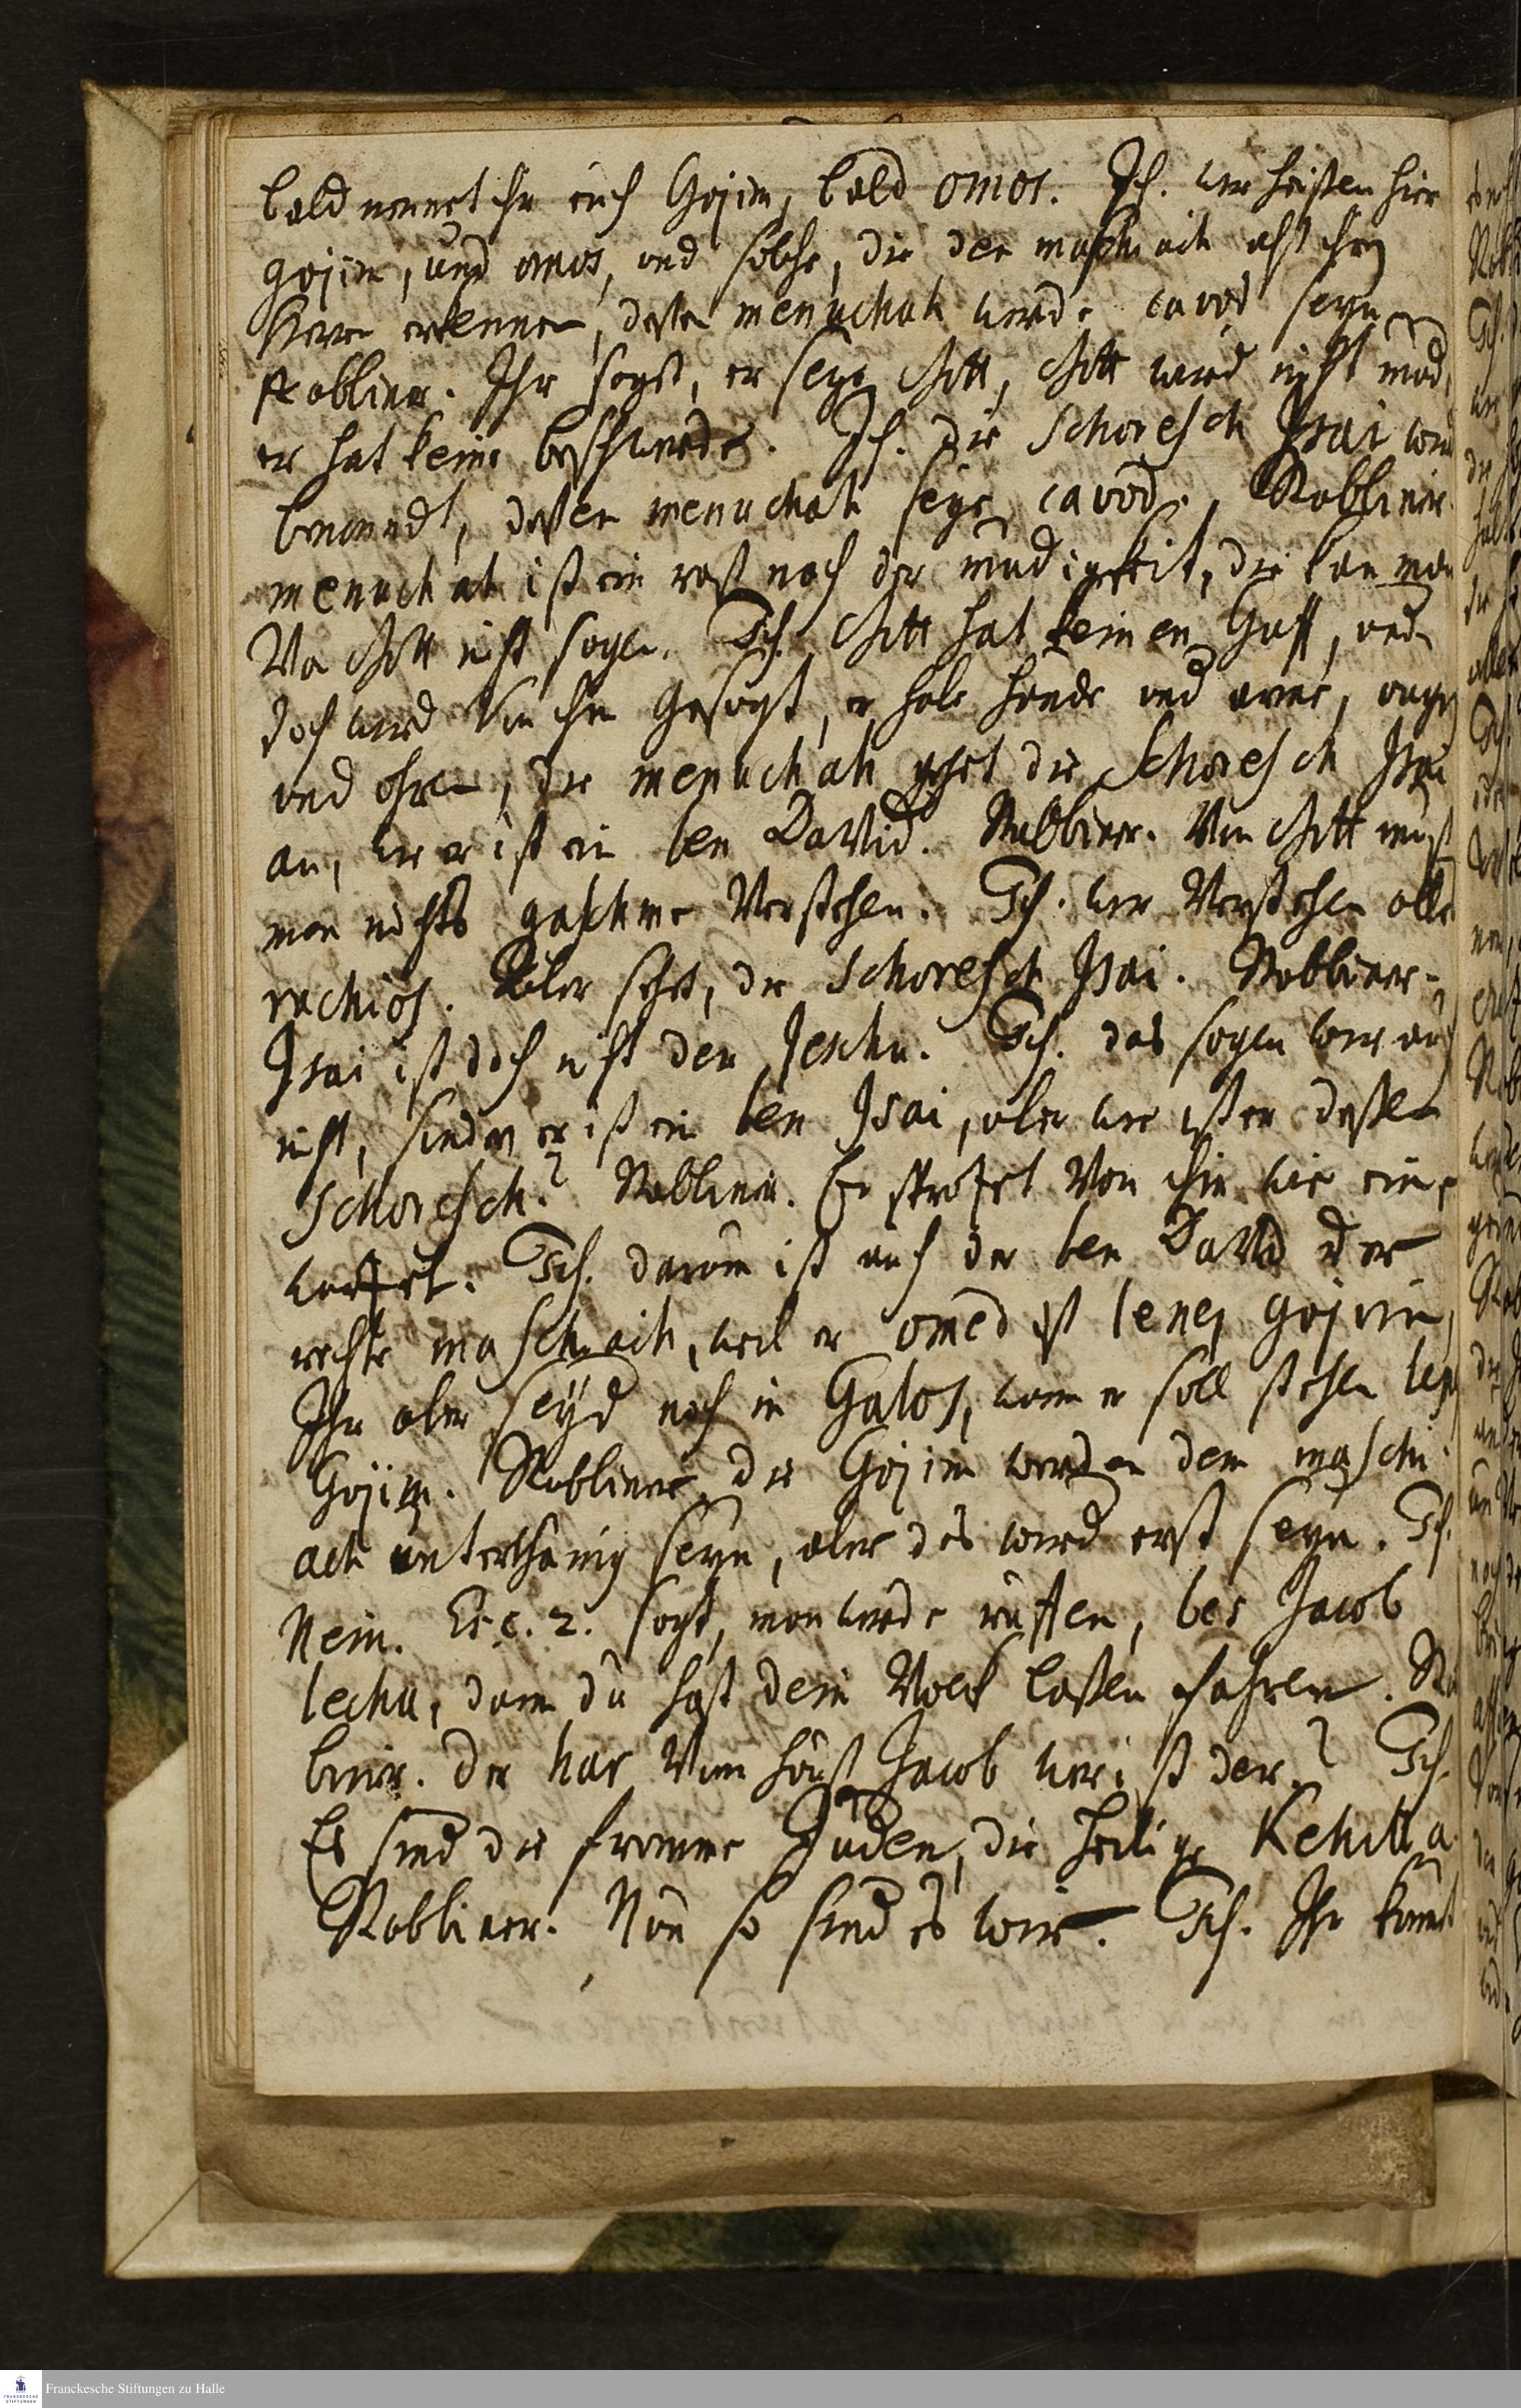 bald nennet ihr euch Gojim, bald omos. Ich. wir heißen hier
gojim, und omos, und solche, die den maschiach als ihren
Herrn erkennen, deßen menuchah werde cavod seyn
Rabbiner. Ihr sagt, er seye Gott, Gott wird nicht müd,
er hat keine beschwerde. Ich. die Schoresch Isai wird
benennet, deßen menuchah seye cavod. Rabbiner.
menuchah ist ein rast nach der müdigkeit, die kan man
Von Gott nicht sagen. Ich. Gott hat keinen Guff, und
doch wird Von ihm gesagt, er habe hände und arme, augen
und ohren, die menuchah gehet die Schoresch Isai
an, wie er ist ein ben David. Rabbiner. Von Gott muß
man nichts gaschme Verstehen. Ich. wir Verstehen alles
ruchios. Aber sehet, die Schoresch Isai. Rabbiner.
Isai ist doch nicht der Jeschu. Ich. das sagen wir auch
nicht, sondern er ist ein ben Isai, aber wie ist er deßen
Schoresch? Rabbiner. Er sproßet Von ihm wie eine
wurtzel. Ich. darum ist auch der ben David der
rechte maschiach, weil er omed ist lenes gojim,
Ihr aber seyd noch in Galos, wann er soll stehen lenes
Gojim. Rabbiner. die Gojim werden dem maschi
ach unterthänig seyn, aber das wird erst seyn. Ich.
Nein. Es. c. 2. sagt, man werde ruffen, bes Jacob
lechu, dann du hast dein Volck laßen fahren. Rab
biner. Der har Vom hauß Jacob wer ist der? Ich.
Es sind die fromme Juden, die heilige Kehilla
Rabbiner. Nun so sind es wir. Ich. Ihr könnt
Franckesche Stiftungen zu Halle